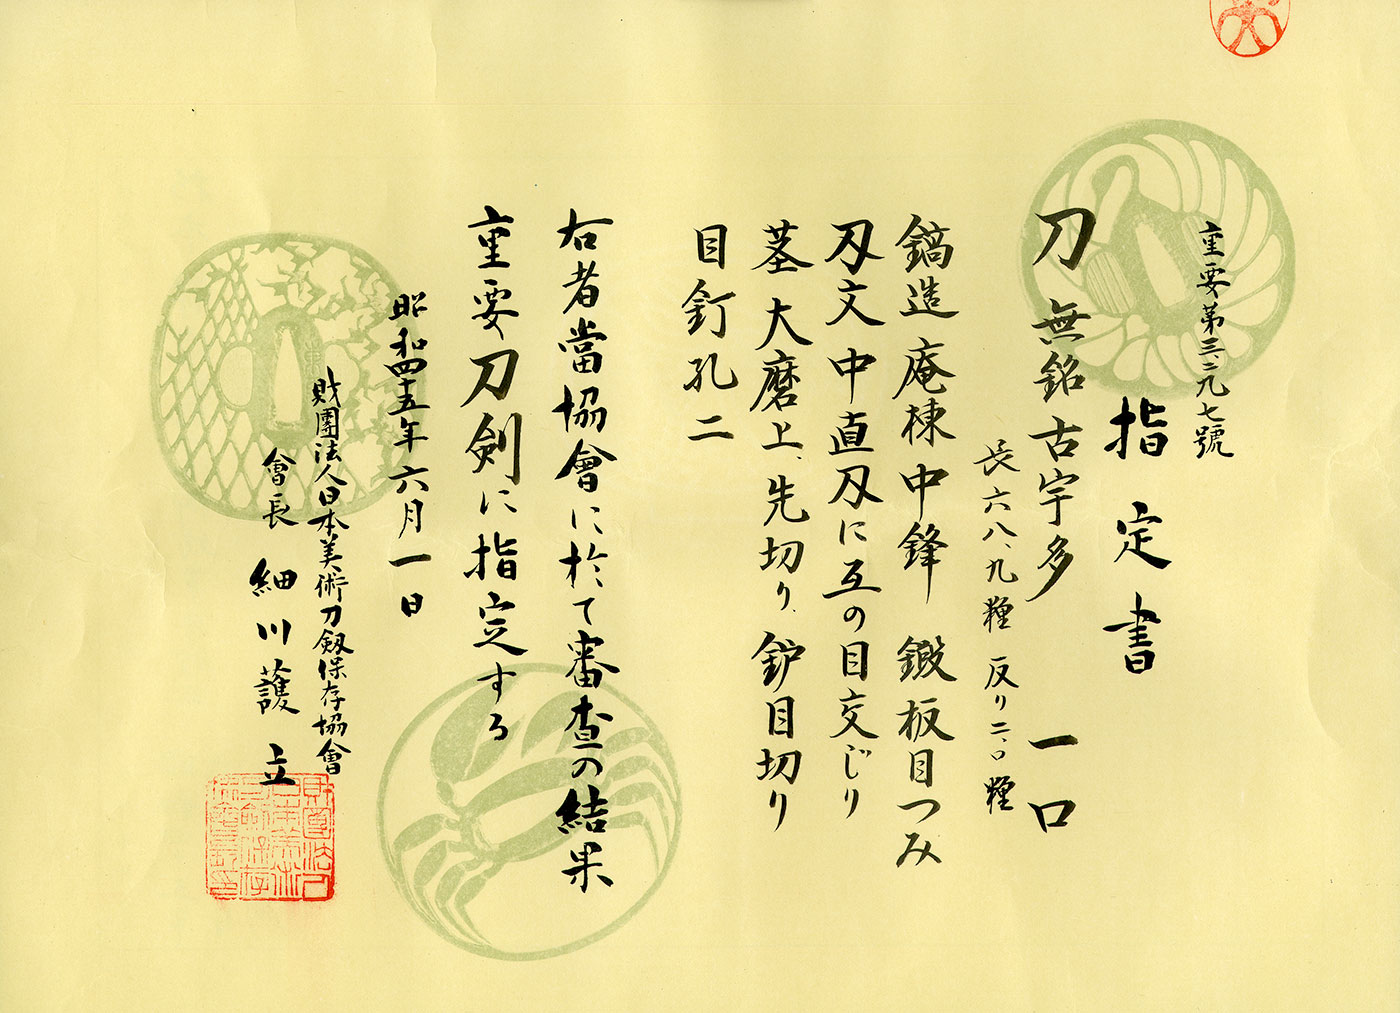 重要第三、二九七號
指定書
刀 無銘 古宇多 一口
長 六八、九糎 反り 二、〇糎
鎬造 庵棟 中鋒 鍛 板目つみ
刄文 中直刄に互の目交じり
茎 大磨上、先切り、鈩目切り
目釘孔二
右者當協會に於て審査の結果
重要刀剣に指定する
昭和四十五年六月一日
財團法人日本美術刀剱保存協會
會長 細川護立